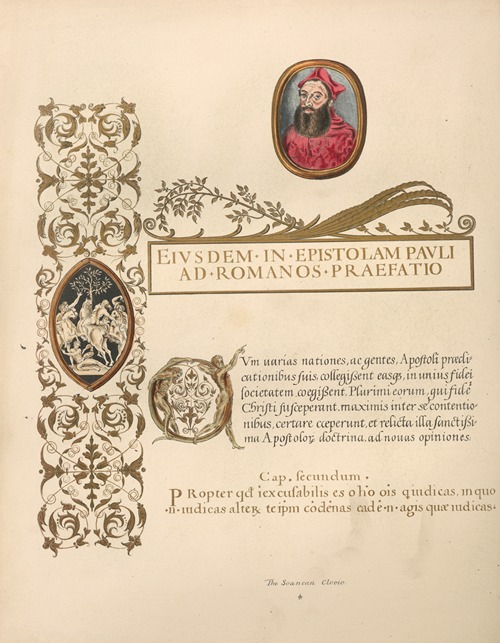 EIVSDEM · IN · EPISTOLAM PAVLI
AD · ROMANOS · PRAEFATIO
CVm uarias nationes, ac gentes, Apostoli prædi
cationibus suis, collegissent easqȝ, in unius fidei
societatem, coegissent. Plurimi eorum, qui fidẽ
Christi susceperant, maximis inter se contentio
nibus, certare cœperunt, et relicta illa sanctissi
ma Apostoloꝝ doctrina, ad nouas opiniones.
Cap. secundum.
PRopter qđ iexcusabilis es o hõ ois q iudicas, in quo
·n· iudicas alteꝝ te ipm cõdẽnas eadẽ ·n· agis quæ iudicas.
The Soanean Clovio